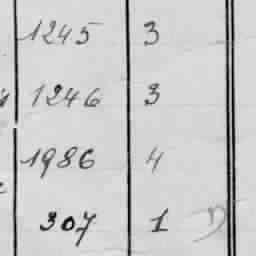 1245 3
1246 3
1986 4
307 1